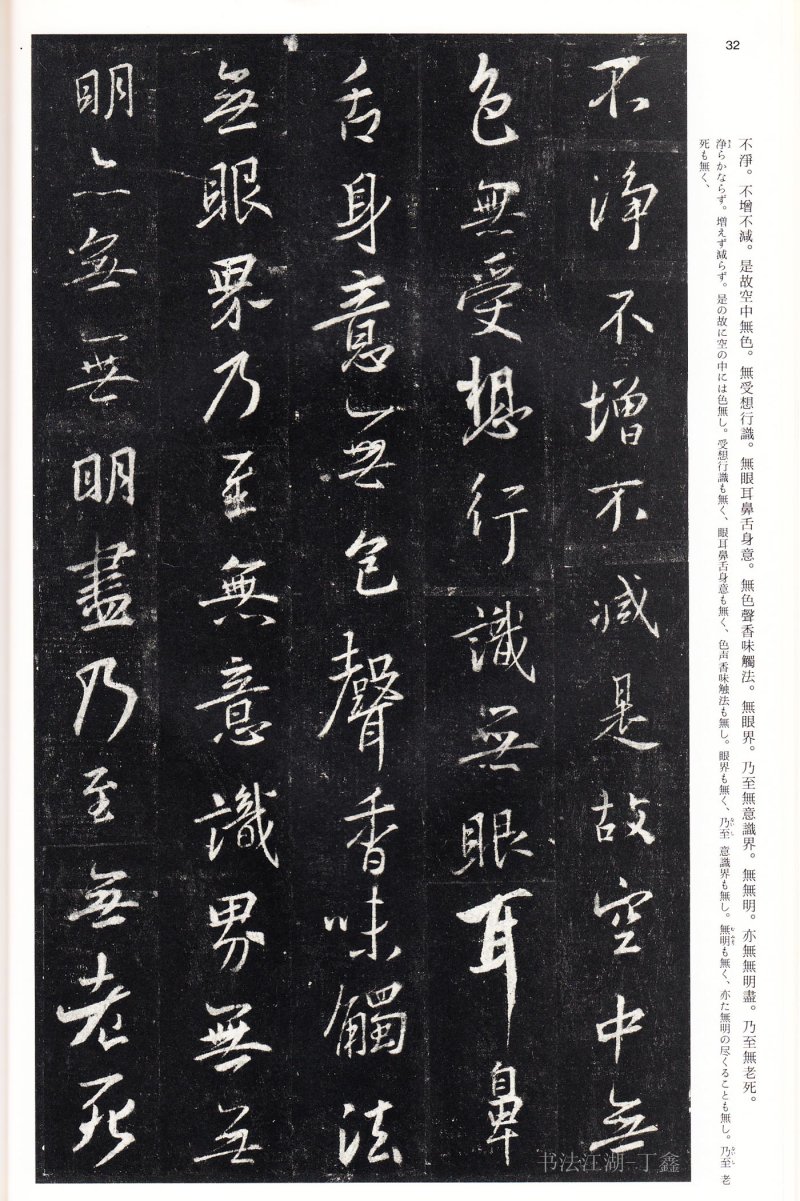 32
不淨。不增不減。是故空中無色。無受想行識。無眼耳鼻舌身意。無色聲香味觸法。無眼界。乃至無意識界。無無明。亦無無明盡。乃至無老死。
浄らかならず。増えず減らず。是の故に空の中には色無し。受想行識も無く、眼耳鼻舌身意も無く、色声香味触法も無し。眼界も無く、乃至意識界も無し。無明も無く、亦た無明の尽くることも無し。乃至老
死も無く、
不淨不增不減是故空中無
色無受想行識無眼耳鼻
舌身意無色聲香味觸法
無眼界乃至無意識界無無
明亦無無明盡乃至無老死
书法江湖 丁鑫